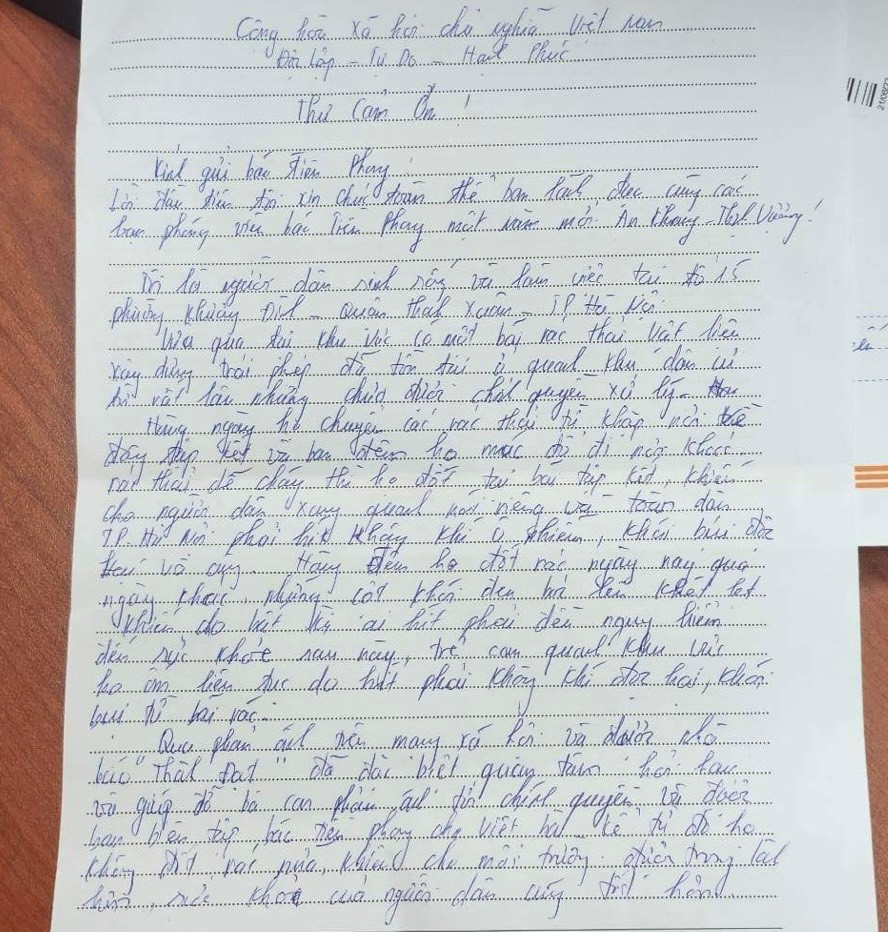 Cộng hòa xã hội chủ nghĩa Việt Nam
Độc Lập - Tự Do - Hạnh Phúc
Thư Cảm Ơn !
Kính gửi báo Tiền Phong !
Lời đầu tiên tôi xin chúc toàn thể ban lãnh đạo cùng các
bạn phóng viên báo Tiền Phong một năm mới An Khang - Thịnh Vượng !
Tôi là người dân sinh sống và làm việc tại tổ 15
phường Khương Đình - Quận Thanh Xuân - TP Hà Nội.
Vừa qua tại khu vực có một bãi rác thải vật liệu
xây dựng trái phép đã tồn tại ở quanh khu dân cư
từ rất lâu nhưng chưa được chính quyền xử lý.
Hàng ngày họ chuyển các rác thải từ khắp nơi về
đây tập kết và ban đêm họ múc đổ đi nơi khác
rác thải dễ cháy thì họ đốt tại bãi tập kết, khiến
cho người dân xung quanh nói riêng và toàn dân
TP. Hà Nội phải hít không khí ô nhiễm, khói bụi độc
hại vô cùng. Hàng đêm họ đốt rác ngày này qua
ngày khác, những cột khói đen bốc lên khét lẹt
khiến do bất kì ai hít phải đều nguy hiểm
đến sức khỏe sau này, trẻ con quanh khu vực
ho ốm liên tục do hít phải không khí độc hại, khói
bụi từ bãi rác.
Qua phản ánh trên mạng xã hội và được nhà
báo "Thành Đạt" đã đặc biệt quan tâm hơn
và giúp đỡ bà con phản ánh tới chính quyền và được
ban biên tập báo Tiền phong cho viết bài. kể từ đó họ
không đốt rác nữa, khiến cho môi trường được trong lành
hơn, sức khỏe của người dân cũng tốt hơn.